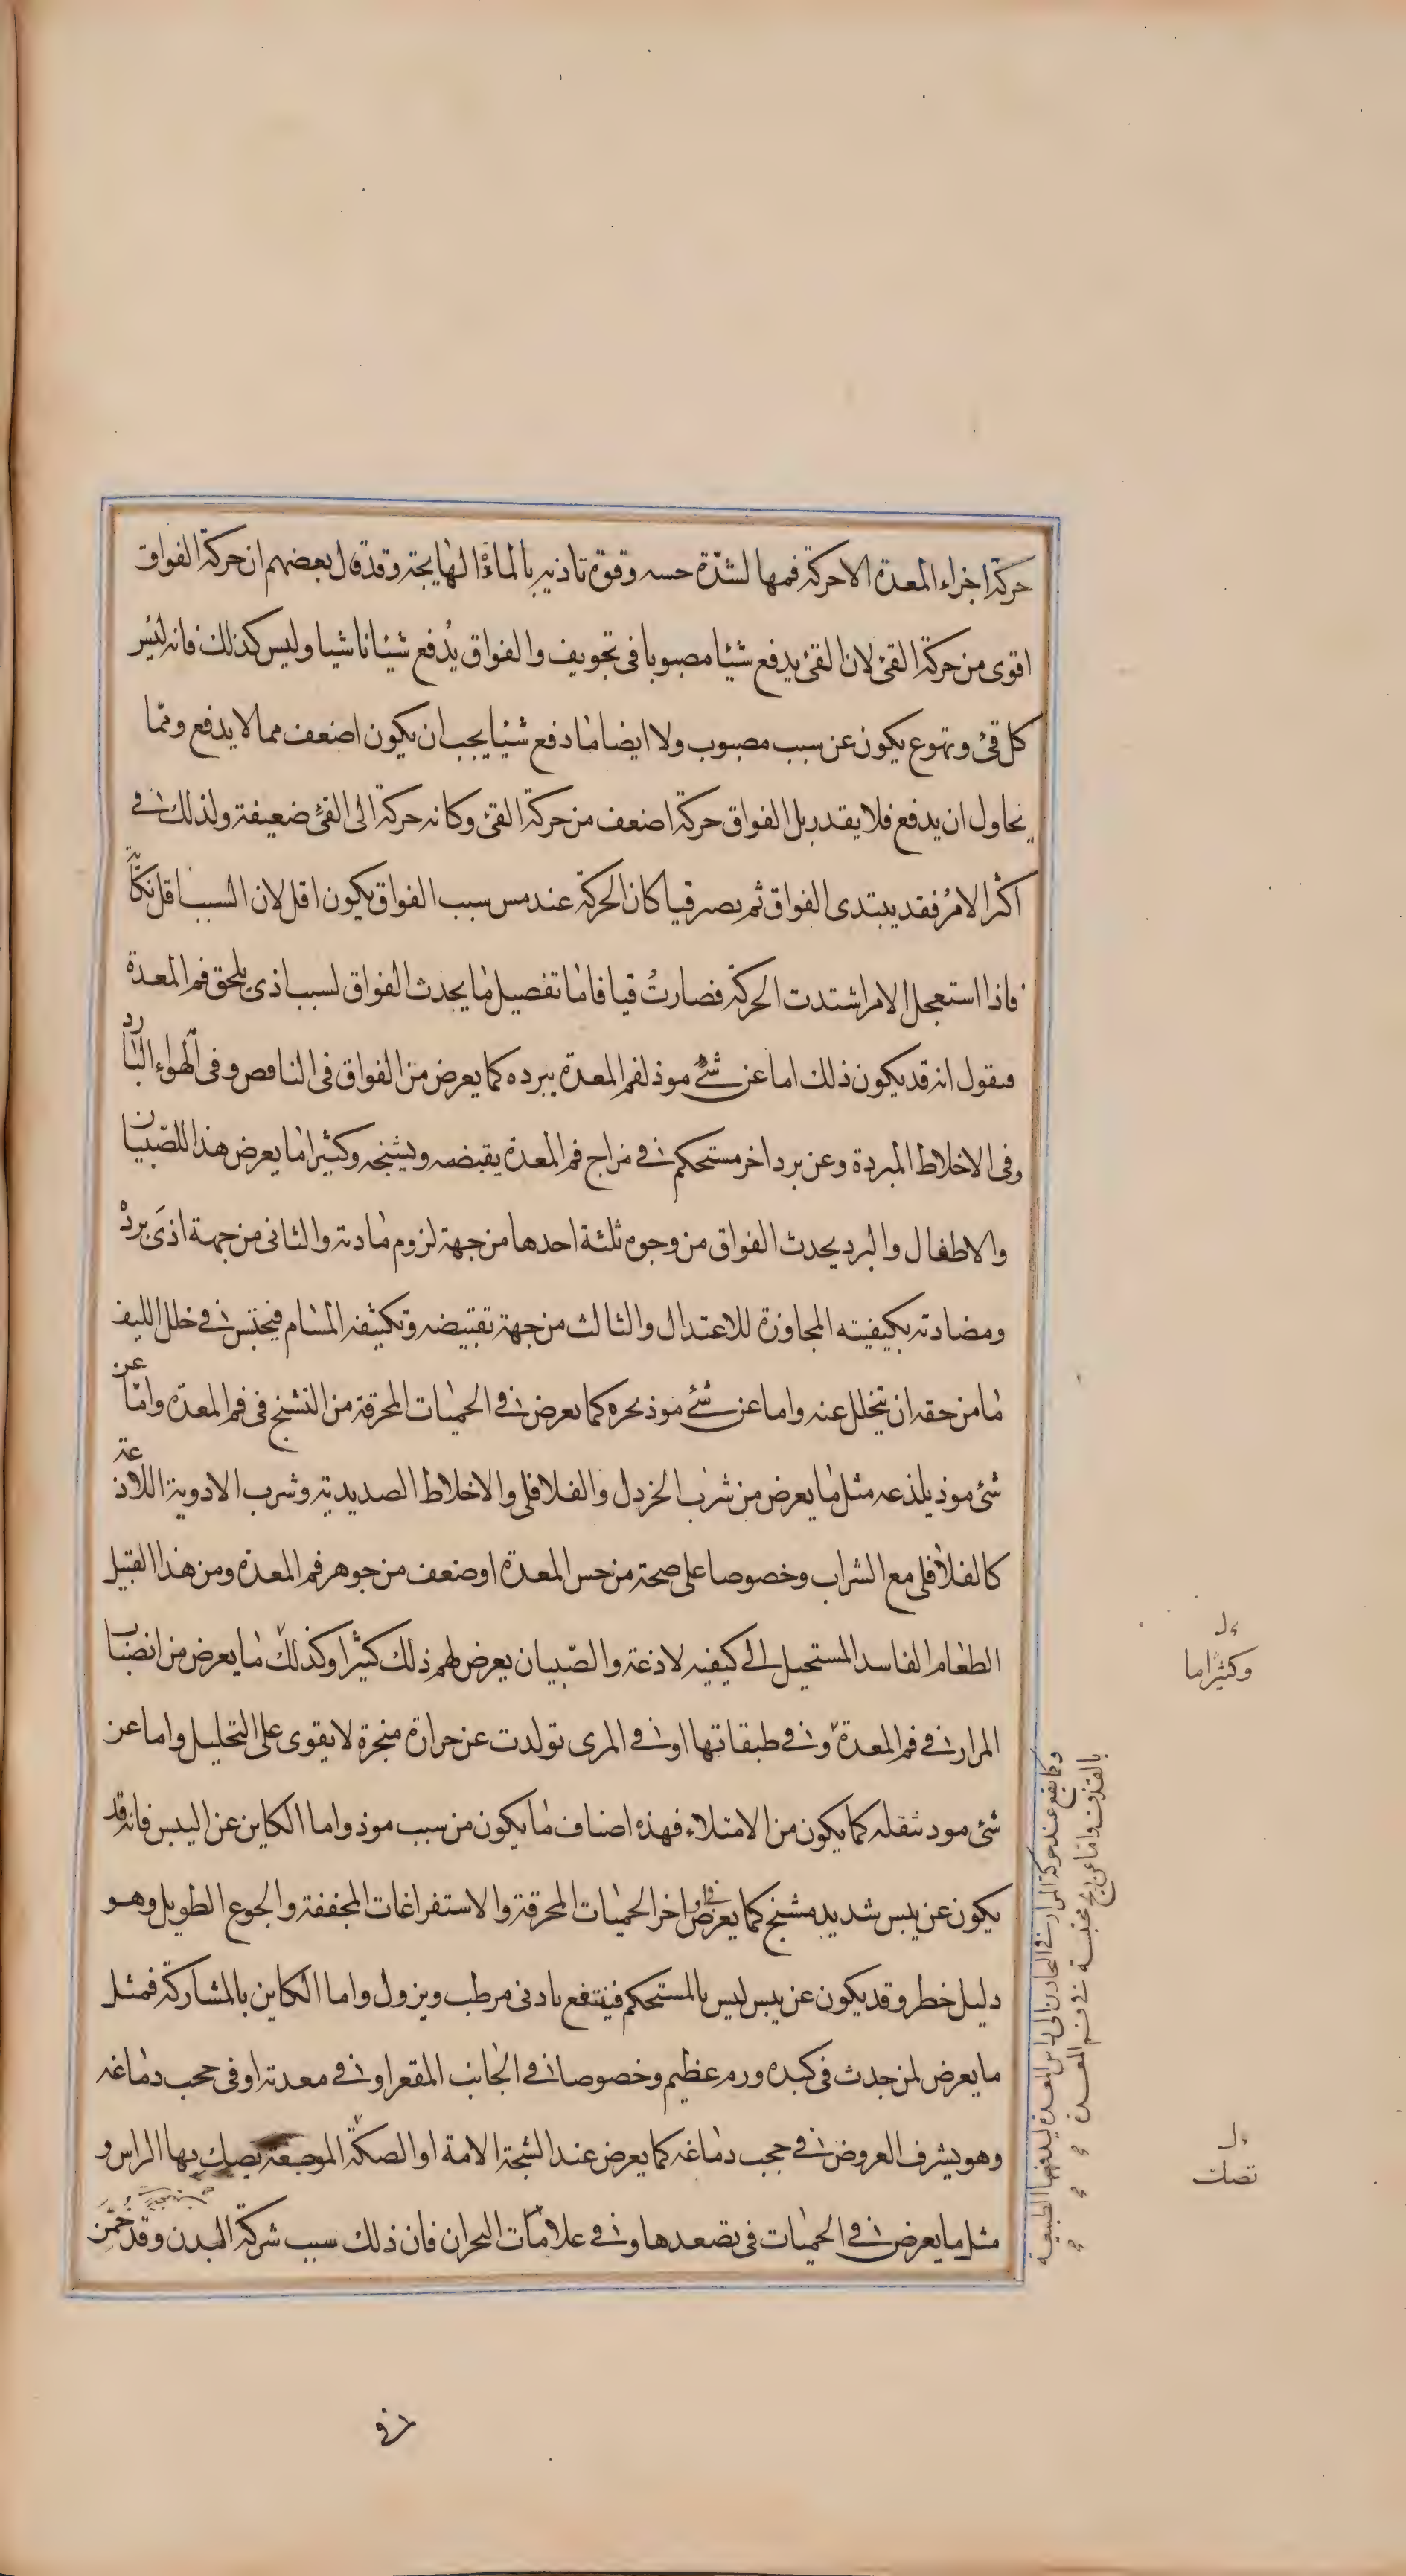 حركة اجزاء المعدة الا حركة فمها لشدّة حسه وقوة تاذيه بالمادة الهايجة وقد قال بعضهم ان حركة الفواق
اقوى من حركة القئ لان القئ يدفع شيئا مصبوبا فى تجويف والفواق يُدفع شيئا ناشبا وليس كذلك فانه ليس
كل قئ وتهوع يكون عن سبب مصبوب ولا ايضا ما دفع شيئا يجب ان يكون اضعف مما لا يدفع ومّما
يحاول ان يدفع فلا يقدر بل الفواق حركة اضعف من حركة القئ وكانه حركة الى القئ ضعيفة ولذلك فى
اكثر الامر فقد يبتدى الفواق ثم يصر قيا كان الحركة عند مس سبب الفواق يكون اقل لان السبب اقل نكاية
فاذا استعجل الامر اشتدت الحركة فصارت قيا فاما تفصيل ما يحدث الفواق لسبب اذى يلحق فم المعدة
فنقول انه قد يكون ذلك اما عن شئ موذ لفم المعدة ببرده كما يعرض من الفواق فى النافض وفى الهواء البارد
وفى الاخلاط المبردة وعن برد اخر مستحكم فى مزاج فم المعدة يقبضه ويشنجه وكثيرا ما يعرض هذا للصّبيان
والاطفال والبرد يحدث الفواق من وجوه ثلثة احدها من جهة لزوم مادته والثانى من جهة اذى برده
ومضادته بكيفيته المجاوزة للاعتدال والثالث من جهة تقبيضه وتكثيفه المسام فيحتبس فى خلل الليف
ما من حقه ان يتحلل عنه واما عن شئ موذ بحره كما يعرض فى الحميات المحرقة من التشنج فى فم المعدة وامّا عن
شئ موذ يلذعه مثل ما يعرض من شرب الخردل والفلافلى والاخلاط الصديدية وشرب الادوية اللاذعة
كالفلافلى مع الشراب وخصوصا على صحة من حس المعدة او ضعف من جوهر فم المعدة ومن هذا القبيل
الطعام الفاسد المستحيل الى كيفيه لاذعة والصّبيان يعرض لهم ذلك كثيرا وكذلك ما يعرض من انصباب
المرار فى فم المعدة وفى طبقاتها او فى المرى تولدت عن حرارة منجرة لا يقوى على التحليل واما عن
شئ موذ بثقله كما يكون من الامتلاء فهذه اصناف ما يكون من سبب موذ واما الكاين عن اليبس فانه قد
يكون عن يبس شديد مشنج كما يعرض فى اواخر الحميات المحرقة والاستفراغات المجففة والجوع الطويل وهو
دليل خطر وقد يكون عن يبس ليس بالمستحكم فينتفع بادنى مرطب ويزول واما الكاين بالمشاركة فمثل
ما يعرض لمن حدث فى كبده ورم عظيم وخصوصا فى الجانب المقعر او فى معدته او فى حجب دماغه
وهو يشرف العروض فى حجب دماغه كما يعرض عند الشجة الامة او الصكة الموجعة يصك بها الراس و
مثل ما يعرض فى الحميات فى تصعدها وفى علامات البحران فان ذلك سبب شركة البدن وقد خُمّن
وكما يقع عند حركة المرار فى البحارين الى راس المعدة ليدفعها الطبيعة
بالقذف واما عن ريح محتبسة فى فم المعدة
وكثيرا ما
تصك
فى